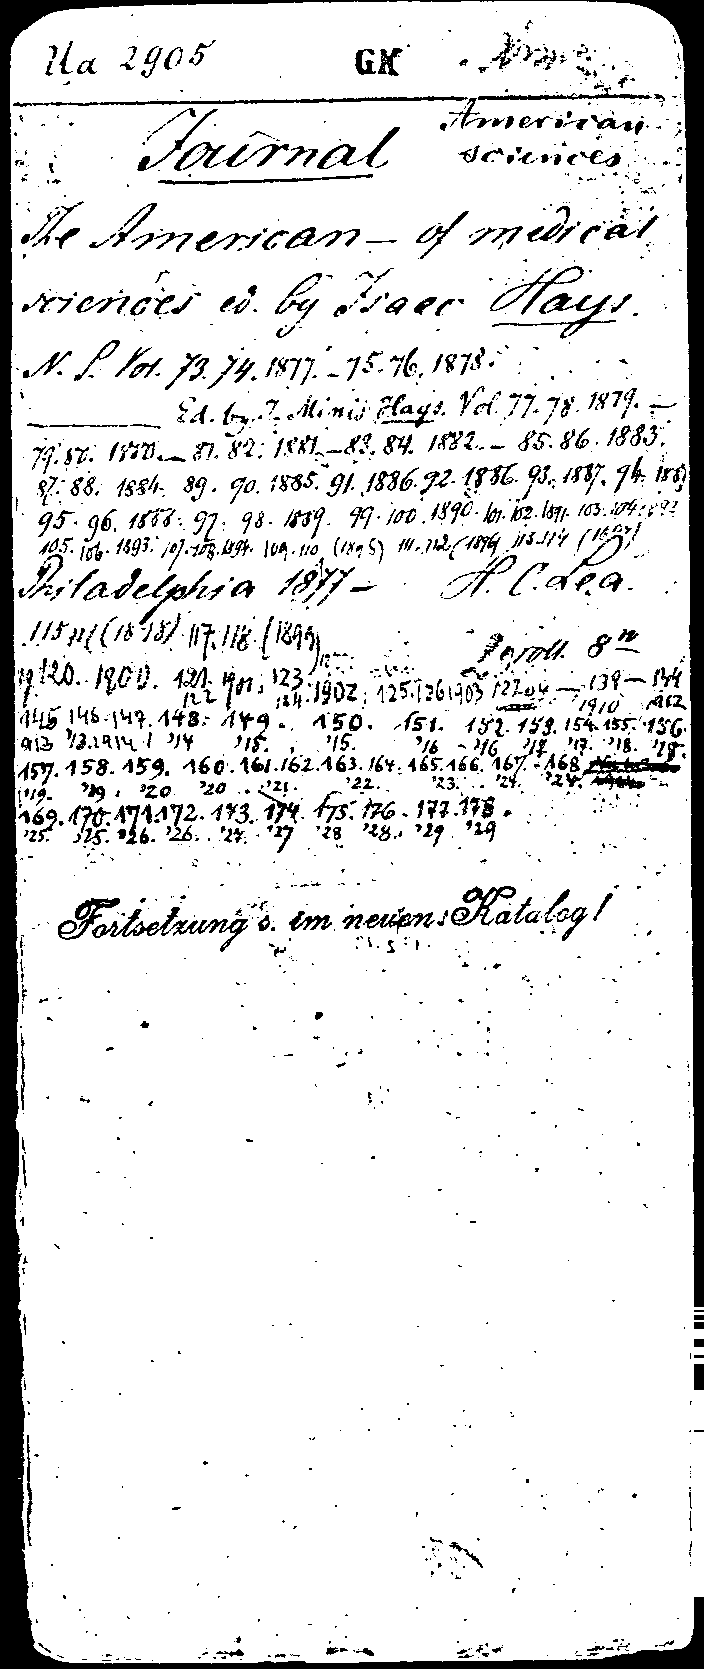 Ua 2905 GK
American
Journal sciences
The American — of medical
sciences ed. by Isaac Hays.
N. S. Vol. 73. 74. 1877. – 75. 76. 1878.
Ed. by I. Minis Hays. Vol. 77. 78. 1879. —
79. 80. 1880. — 81. 82. 1881. – 83. 84. 1882. – 85. 86. 1883.
87. 88. 1884. 89. 90. 1885. 91. 1886. 92. 1886. 93. 1887. 94. 1887
95. 96. 1888. 97. 98. 1889. 99. 100. 1890. 101. 102. 1891. 103. 104. 1892
105. 106. 1893. 107. 108. 1894. 109. 110. (1895) 111. 112 (1896) 113. 114 (1897)
Philadelphia 1877 – H. C. Lea.
115 (1898) 117. 118. (1899)
8°
120. 1900. 121. 122 1901. 123. 124. 1902. 125. 126 1903 127 04 — 139 — 1910 1912
145 146. 147. 148. 149. 150. 151. 152. 153. 154. 155. 156.
913 '13. 1914 '14 '15. '15. '16 '16 '17 '17. '18. '18.
157. 158. 159. 160. 161. 162. 163. 164. 165. 166. 167. 168.
'19. '19. '20 '20 '21. '22. '23. '24. '24.
169. 170. 171. 172. 173. 174. 175. 176. 177. 178.
'25. '25. '26. '26. '27. '27 '28 '28. '29 '29
Fortsetzung s. im neuen Katalog!